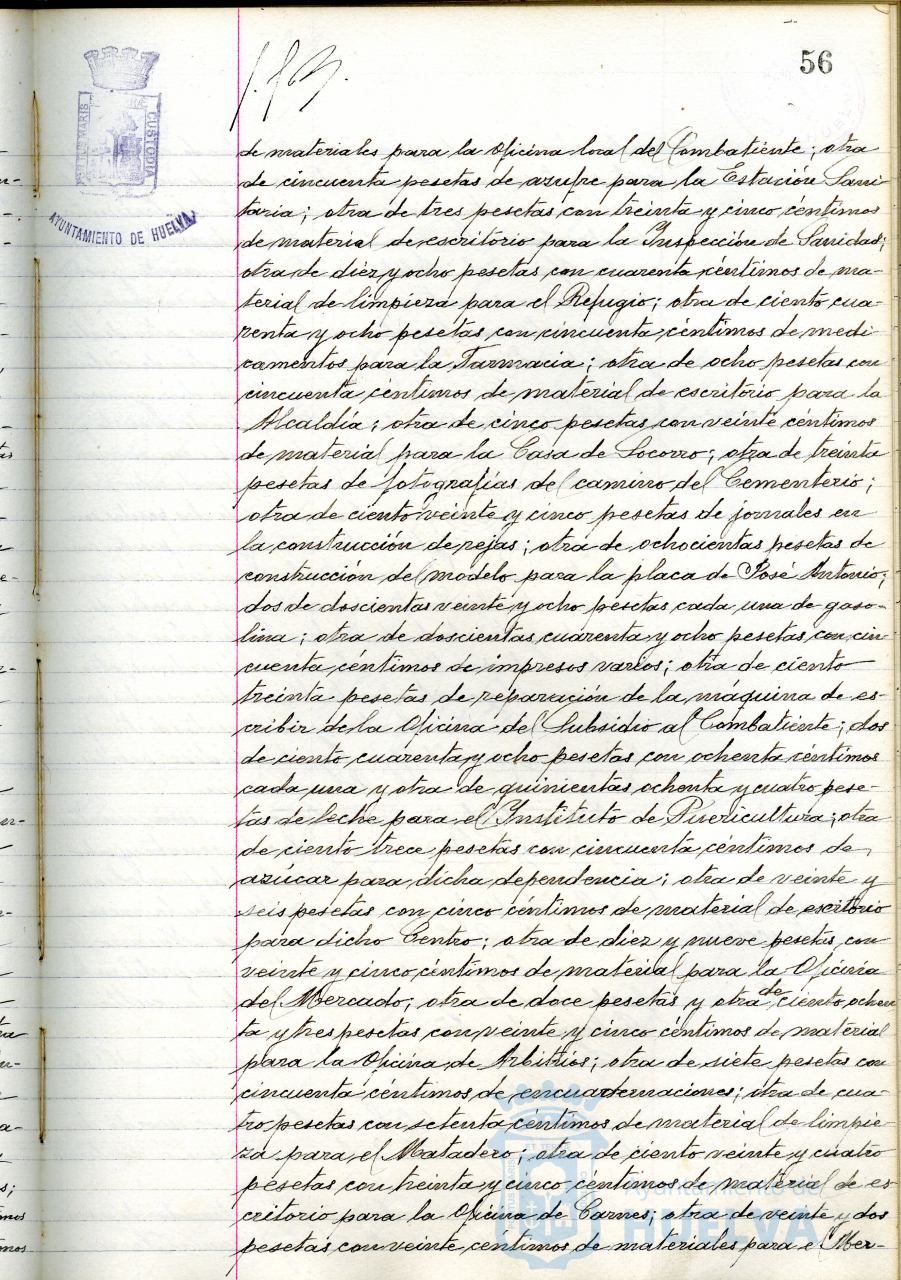 56
PORTUS MARIS
CUSTODIA
AYUNTAMIENTO DE HUELVA
de materiales para la Oficina local del Combatiente; otra
de cincuenta pesetas de azufre para la Estación Sani
taria; otra de tres pesetas con treinta y cinco céntimos
de material de escritorio para la Inspección de Sanidad;
otra de diez y ocho pesetas con cuarenta céntimos de ma-
terial de limpieza para el Refugio; otra de ciento cua-
renta y ocho pesetas con cincuenta céntimos de medi
camentos para la Farmacia; otra de ocho pesetas con
cincuenta céntimos de material de escritorio para la
Alcaldía; otra de cinco pesetas con veinte céntimos
de material para la Casa de Socorro; otra de treinta
pesetas de fotografías del camino del Cementerio;
otra de ciento veinte y cinco pesetas de jornales en
la construcción de rejas; otra de ochocientas pesetas de
construcción del modelo para la placa de José Antonio;
dos de doscientas veinte y ocho pesetas cada una de gaso-
lina; otra de doscientas cuarenta y ocho pesetas con cin-
cuenta céntimos de impresos varios; otra de ciento
treinta pesetas de reparación de la máquina de es-
cribir de la Oficina del Subsidio al Combatiente; dos
de ciento cuarenta y ocho pesetas con ochenta céntimos
cada una y otra de quinientas ochenta y cuatro pese-
tas de leche para el Instituto de Puericultura; otra
de ciento trece pesetas con cincuenta céntimos de
azúcar para dicha dependencia; otra de veinte y
seis pesetas con cinco céntimos de material de escritorio
para dicho Centro; otra de diez y nueve pesetas con
veinte y cinco céntimos de material para la Oficina
del Mercado; otra de doce pesetas y otra de ciento ochen
ta y tres pesetas con veinte y cinco céntimos de material
para la Oficina de Arbitrios; otra de siete pesetas con
cincuenta céntimos de encuadernaciones; otra de cua-
tro pesetas con setenta céntimos de material de limpie-
za para el Matadero; otra de ciento veinte y cuatro
pesetas con treinta y cinco céntimos de material de es-
critorio para la Oficina de Carnes; otra de veinte y dos
pesetas con veinte céntimos de materiales para el Mer-
Ayuntamiento de
HUELVA